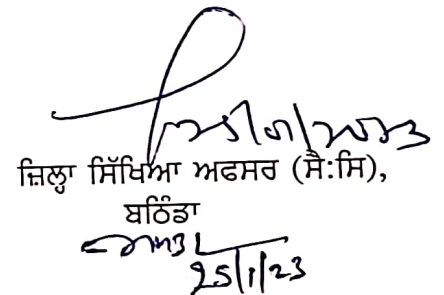 ਜ਼ਿਲ੍ਹਾ ਸਿੱਖਿਆ ਅਫਸਰ (ਸੈ:ਸਿ),
ਬਠਿੰਡਾ
25/1/23